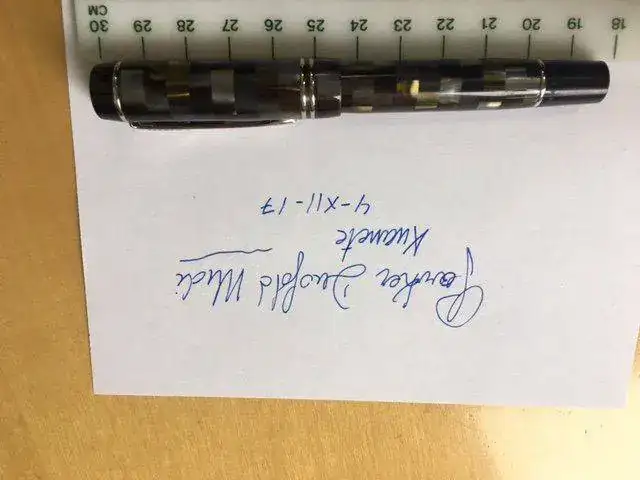 Parker Duofold Midi
4-XII-17
18 19 20 21 22 23 24 25 26 27 28 29 30
CM